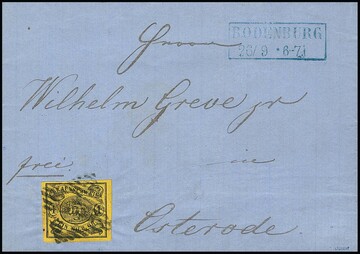 BODENBURG
26/9 * 6-7
Herrn
Wilhelm Greve jr
frei
in
Osterode.